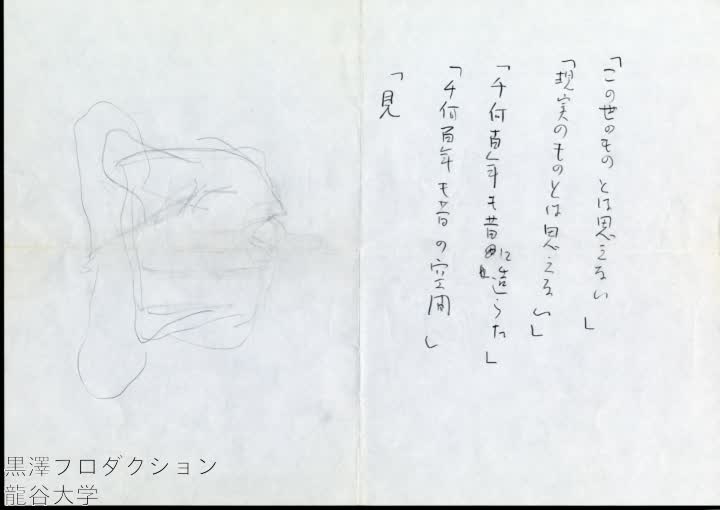 「この世のものとは思えない」
「現実のものとは思えない」
「千何百年も昔に造られた」
「千何百年も昔の空間」
「見
黒澤プロダクション
龍谷大学